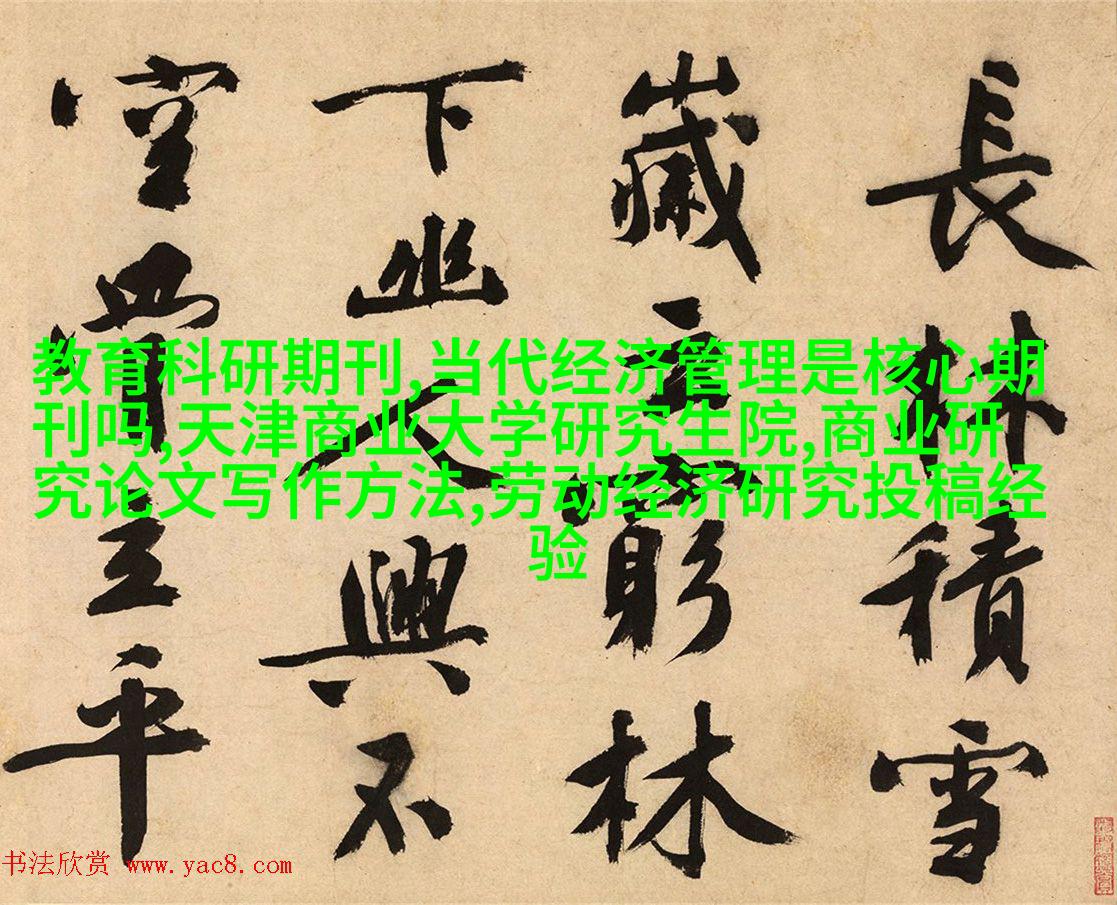 教育科研期刊,当代经济管理是核心期
刊吗,天津商业大学研究生院,商业研
究论文写作方法,劳动经济研究投稿经
验
長林積雪
歲林
下幽人興不
空平
书法欣赏 www.yac8.com